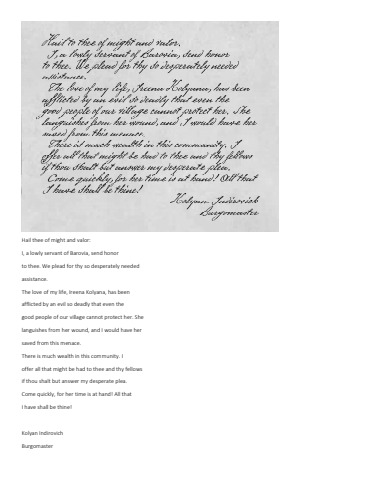 Hail to thee of might and valor.
I, a lowly servant of Barovia, send honor
to thee. We plead for thy so desperately needed
assistance.
The love of my life, Ireena Kolyana, has been
afflicted by an evil so deadly that even the
good people of our village cannot protect her. She
languishes from her wound, and I would have her
saved from this menace.
There is much wealth in this community. I
offer all that might be had to thee and thy fellows
if thou shalt but answer my desperate plea.
Come quickly, for her time is at hand! All that
I have shall be thine!
Kolyan Indirovich
Burgomaster
Hail thee of might and valor:
I, a lowly servant of Barovia, send honor
to thee. We plead for thy so desperately needed
assistance.
The love of my life, Ireena Kolyana, has been
afflicted by an evil so deadly that even the
good people of our village cannot protect her. She
languishes from her wound, and I would have her
saved from this menace.
There is much wealth in this community. I
offer all that might be had to thee and thy fellows
if thou shalt but answer my desperate plea.
Come quickly, for her time is at hand! All that
I have shall be thine!
Kolyan Indirovich
Burgomaster